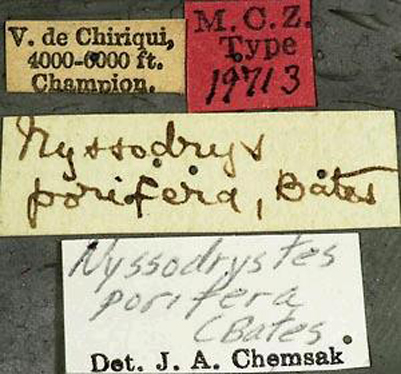 V. de Chiriqui,
4000-6000 ft.
Champion.
M.C.Z.
Type
19713
Nyssodrys
porifera, Bates
Nyssodrystes
porifera
(Bates
Det. J. A. Chemsak